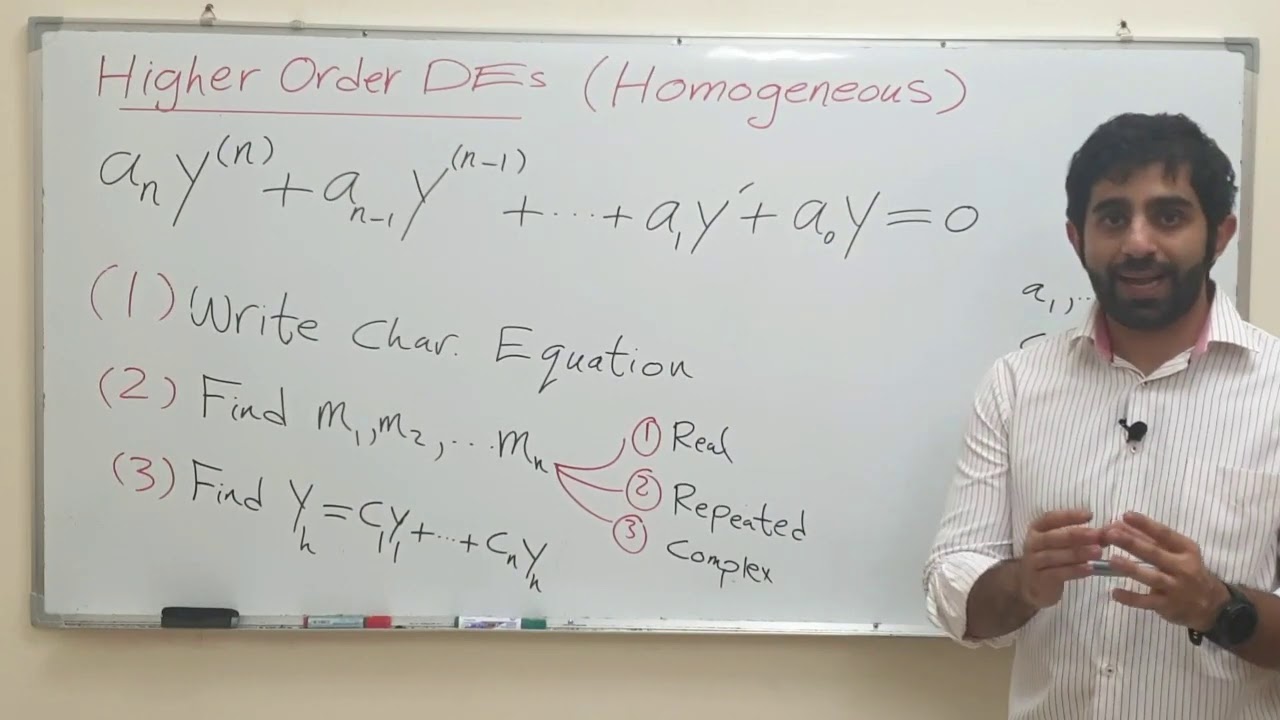 Higher Order DEs (Homogeneous)
aₙy⁽ⁿ⁾ + aₙ₋₁y⁽ⁿ⁻¹⁾ + ... + a₁y′ + a₀y = 0
a₁, ..
(1) Write Char. Equation
(2) Find m₁, m₂, ... mₙ
① Real
② Repeated
③ Complex
(3) Find yₕ = c₁y₁ + ... + cₙyₙ